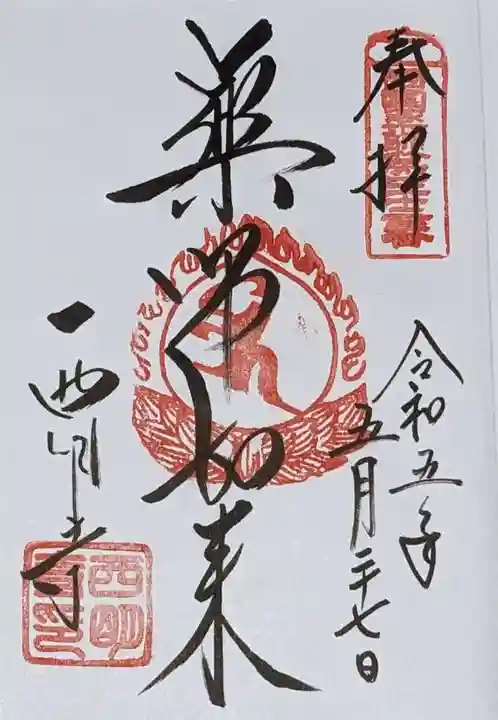 奉拝
令和五年
五月二十七日
薬师如来
一西明寺
西明
寺印